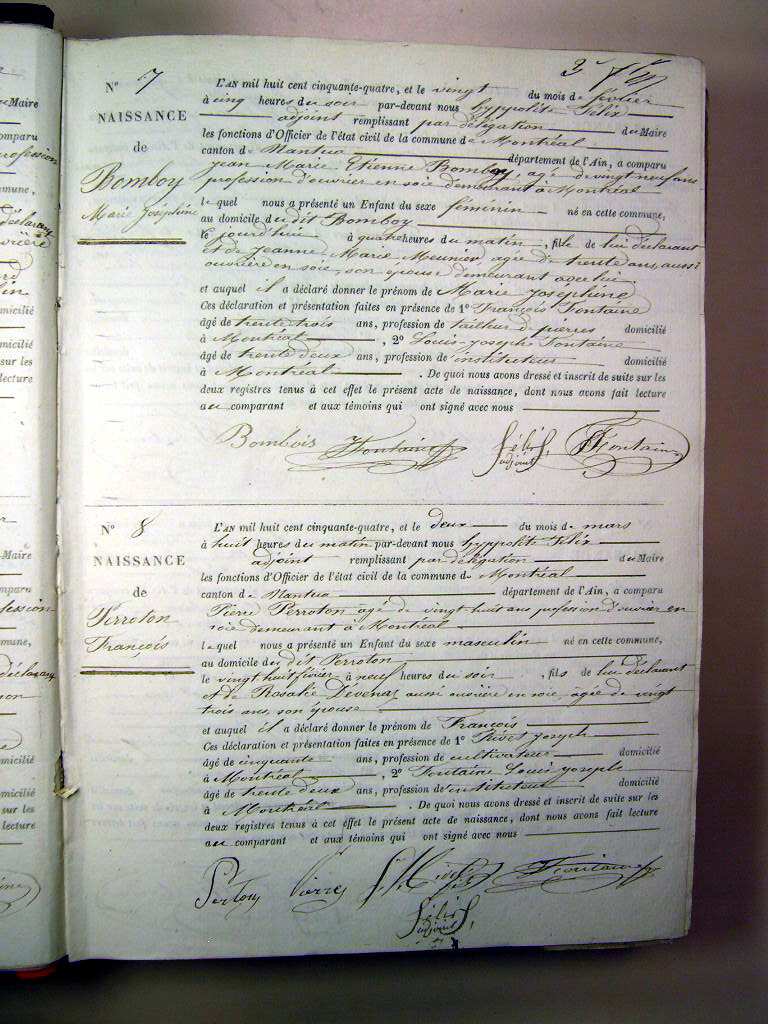 N° 7
NAISSANCE
de
Bomboy
Marie Joséphine
L'AN mil huit cent cinquante-quatre, et le vingt du mois de février
à cinq heures du soir par-devant nous hyppolite Félix
adjoint remplissant par déligation du Maire
les fonctions d'Officier de l'état civil de la commune de Montréal
canton de Nantua département de l'Ain, a comparu
jean Marie Etienne Bomboy, agé de vingt neuf ans
profession d'ouvrier en soie demeurant à Montréal
lequel nous a présenté un Enfant du sexe féminin né en cette commune,
au domicile du dit Bomboy
le jourd'hui à quatre heures du matin, fille de lui déclarant
et de jeanne Marie Meunier agée de trente ans, aussi
ouvrière en soie, son épouse demeurant avec lui.
et auquel il a déclaré donner le prénom de Marie Joséphine
Ces déclaration et présentation faites en présence de 1° François Fontaine
âgé de trente trois ans, profession de tailleur de pierres domicilié
à Montréal, 2° Louis-joseph Fontaine
âgé de trente deux ans, profession de instituteur domicilié
à Montréal. De quoi nous avons dressé et inscrit de suite sur les
deux registres tenus à cet effet le présent acte de naissance, dont nous avons fait lecture
au comparant et aux témoins qui ont signé avec nous
Bombois Fontaine Félix adjoint Fontaine
N° 8
NAISSANCE
de
Perroton
François
L'AN mil huit cent cinquante-quatre, et le deux du mois de mars
à huit heures du matin par-devant nous hyppolite Félix
adjoint remplissant par déligation du Maire
les fonctions d'Officier de l'état civil de la commune de Montréal
canton de Nantua département de l'Ain, a comparu
Pierre Perroton agé de vingt huit ans profession d'ouvrier en
soie demeurant à Montréal
lequel nous a présenté un Enfant du sexe masculin né en cette commune,
au domicile du dit Perroton
le vingt huit février à neuf heures du soir, fils de lui déclarant
et de Rosalie Dévenaz aussi ouvrière en soie, agée de vingt
trois ans, son épouse
et auquel il a déclaré donner le prénom de François
Ces déclaration et présentation faites en présence de 1° Rivet joseph
âgé de cinquante ans, profession de cultivateur domicilié
à Montréal, 2° Fontaine Louis joseph
âgé de trente deux ans, profession de instituteur domicilié
à Montréal. De quoi nous avons dressé et inscrit de suite sur les
deux registres tenus à cet effet le présent acte de naissance, dont nous avons fait lecture
au comparant et aux témoins qui ont signé avec nous
Pierres Fontaine
Félix
adjoint